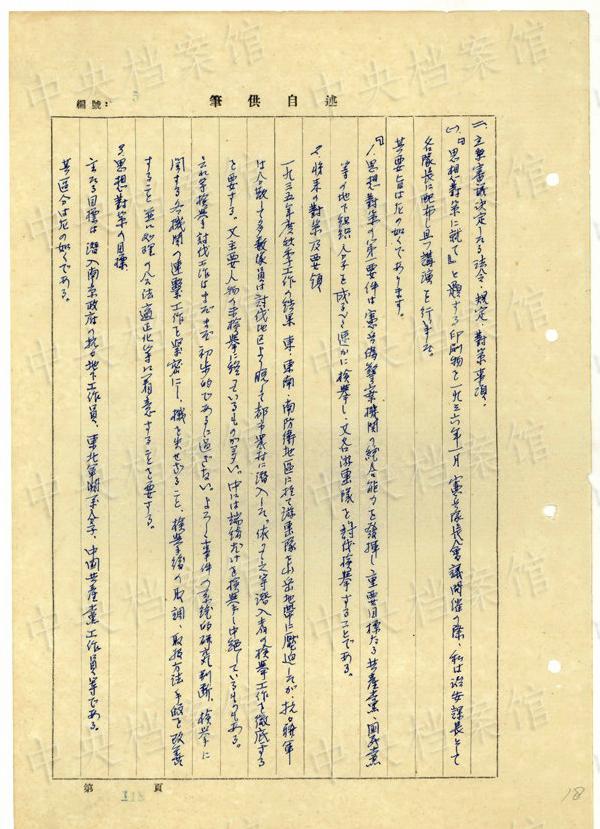 筆供自述
編號:
二、主要審議決定したる法令、規定、對策事項、
(一)、「思想對策に就て」と題する印刷物を一九三六年一月憲兵隊長會議開催の際、私は治安課長として
各隊長に配布し且つ講演を行ふた
其要旨は左の如くであります。
1、思想對策の第一要件は憲兵偽警察機關の綜合能力を發揮し重要目標たる共產黨、國民黨
等の地下組織、分子を成るべく速かに檢擧し、又各游擊隊を討伐檢擧することである。
2、將來の對策及要領
一九三五年度秋季工作の結果東、東南、南防衛地區に於て游擊隊を山岳地帶に壓迫したが、抗日將軍
は分散して多數隊員は討伐地區より脫して都市農村に潛入した。依而之等潛入者の檢擧工作を徹底する
を要する。又主要人物の未檢擧に終っているものが多い。中には端緒だけを檢擧し中絕しているものもある。
之れ等檢擧討伐工作はまだまだ初步的であるに過ぎない。よろしく事件の系統的研究判斷、檢擧に
關する各機關の連繫工作を緊密にし、機を失せざること、檢擧者の取調、取扱方法手段を改善
すること並に處理の合法適正化等に着意することを要する。
3、思想對策の目標
主たる目標は潛入南京政府の抗日地下工作員、東北軍關系分子、中國共產黨工作員等である。
其區分は左の如くである。
第 頁
18
中央档案馆